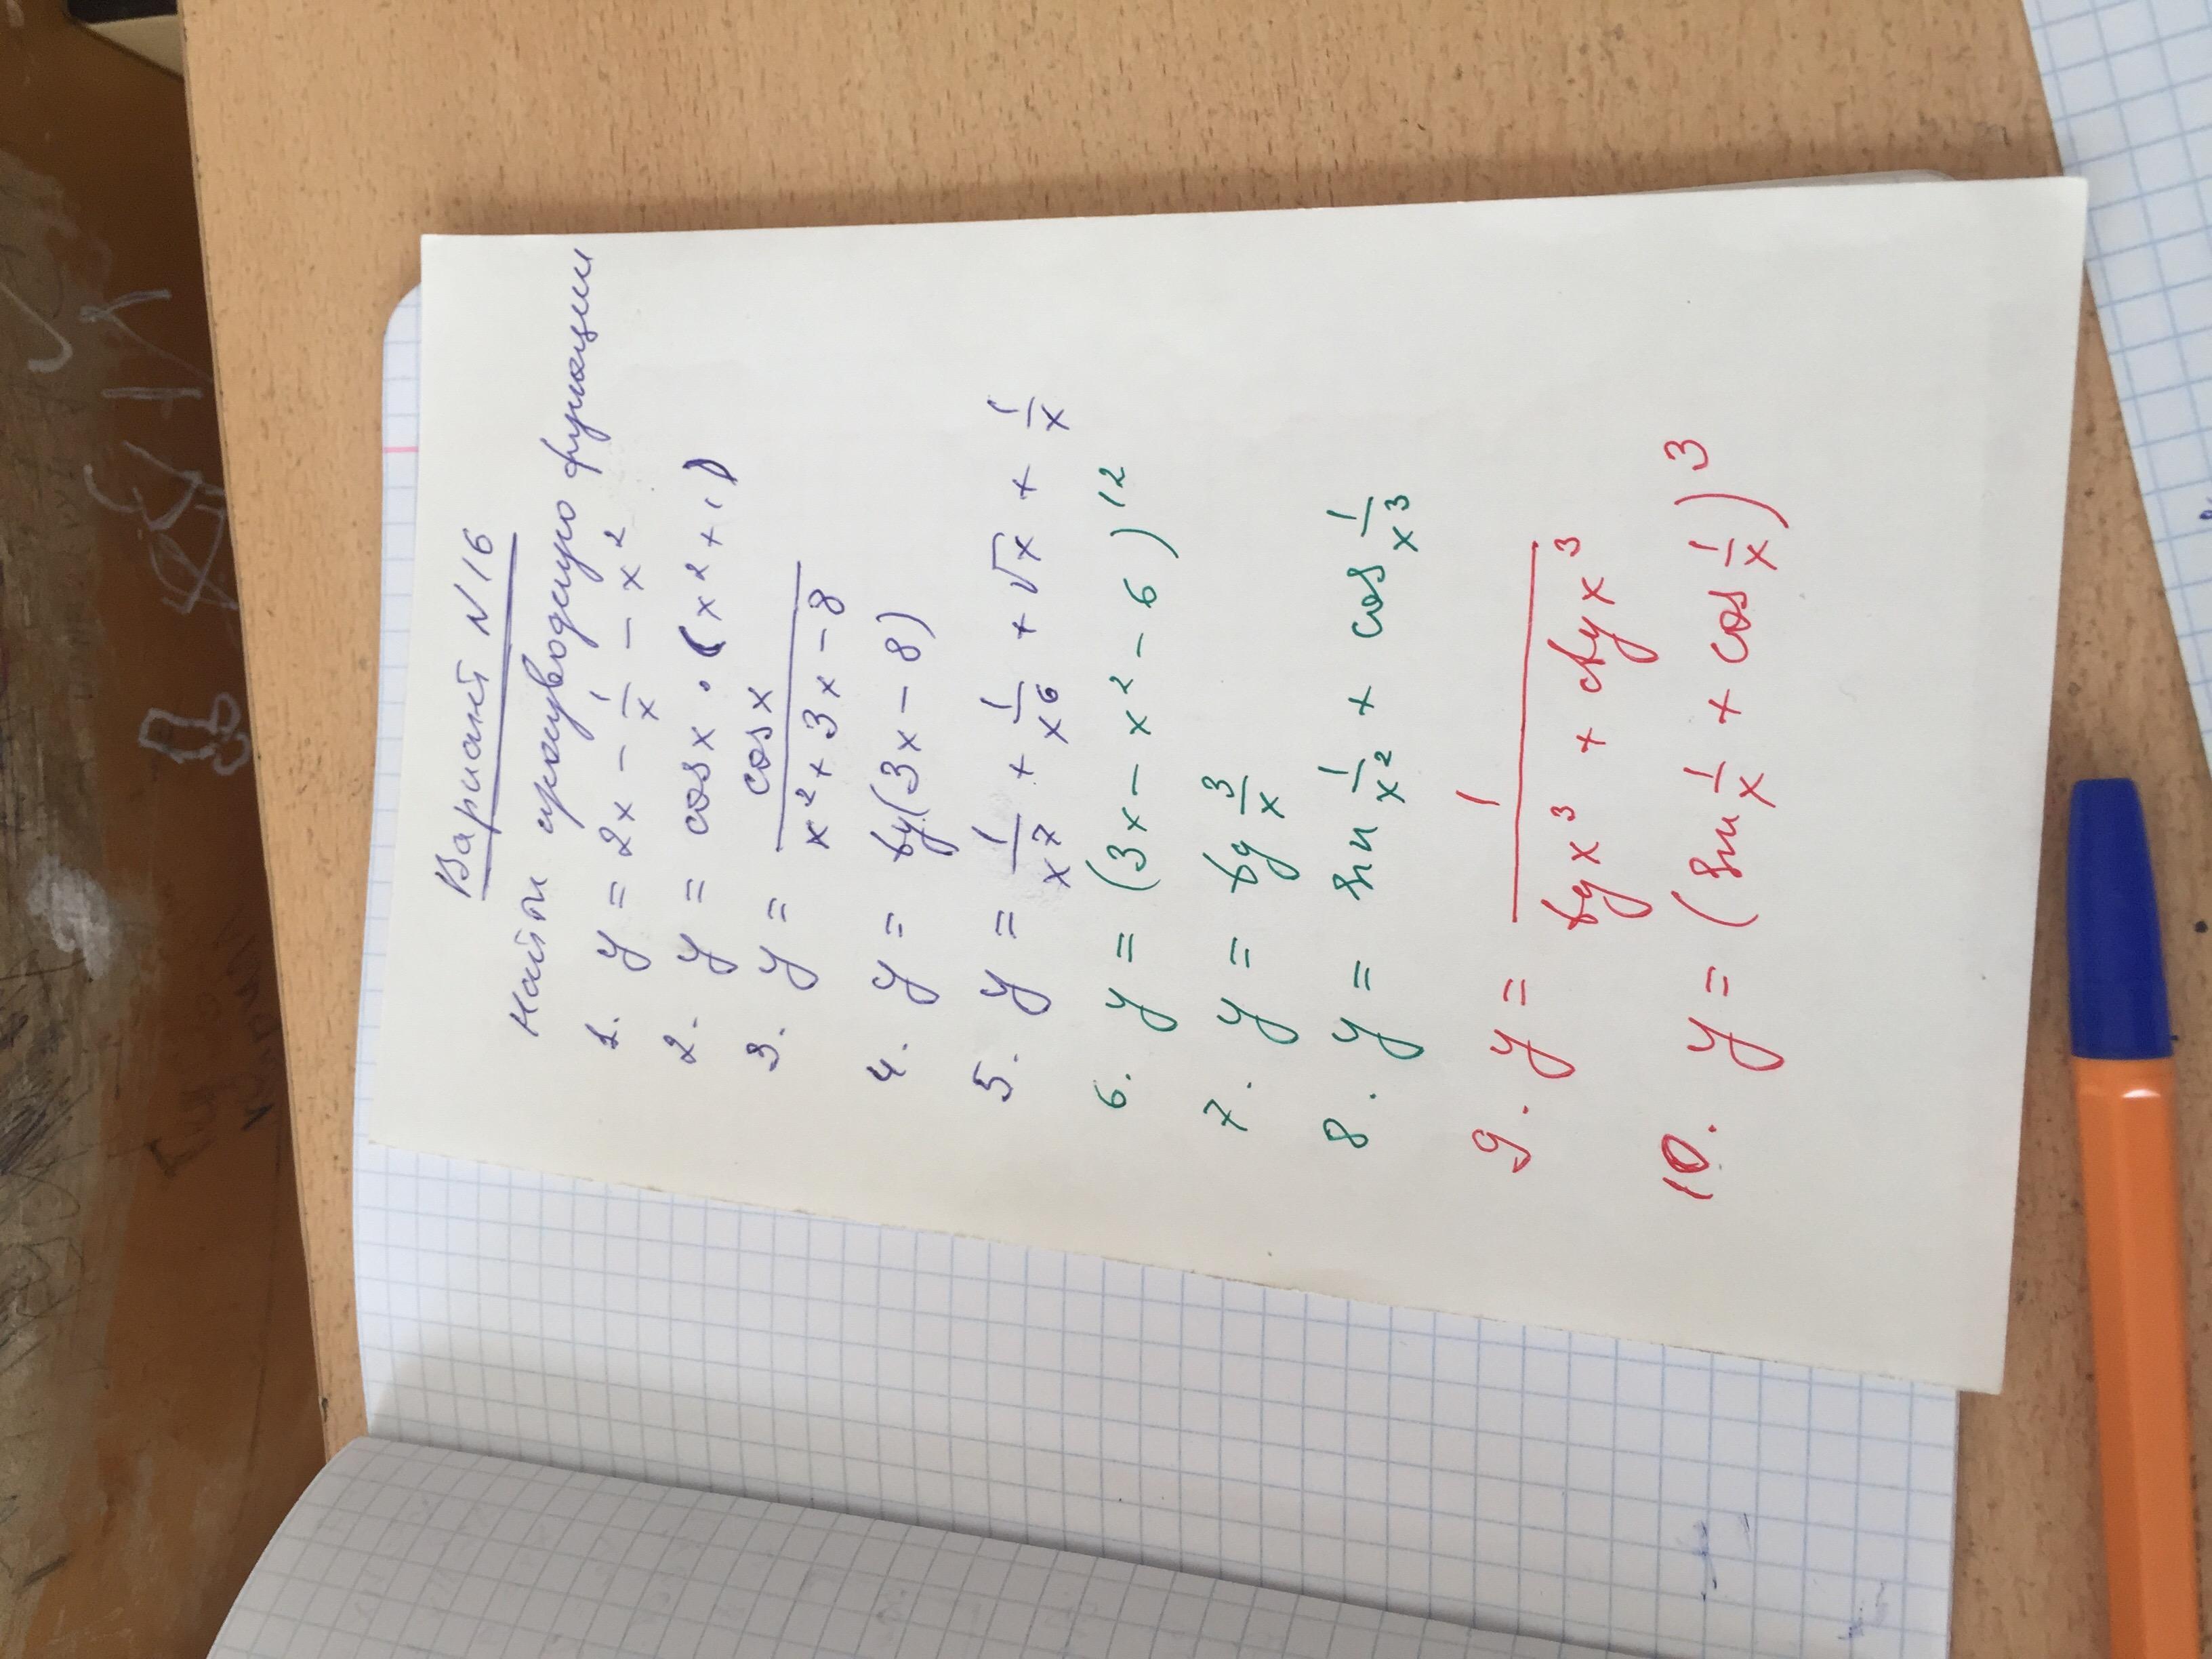 Вариант N16
Найти производную функции
1. y = 2x - 1/x - x²
2. y = cosx · (x² + 1)
3. y = cosx / (x² + 3x - 8)
4. y = tg(3x - 8)
5. y = 1/x⁷ + 1/x⁶ + √x + 1/x
6. y = (3x - x² - 6)¹²
7. y = tg 3/x
8. y = sin 1/x² + cos 1/x³
9. y = 1 / (tgx³ + ctgx³)
10. y = (sin 1/x + cos 1/x)³